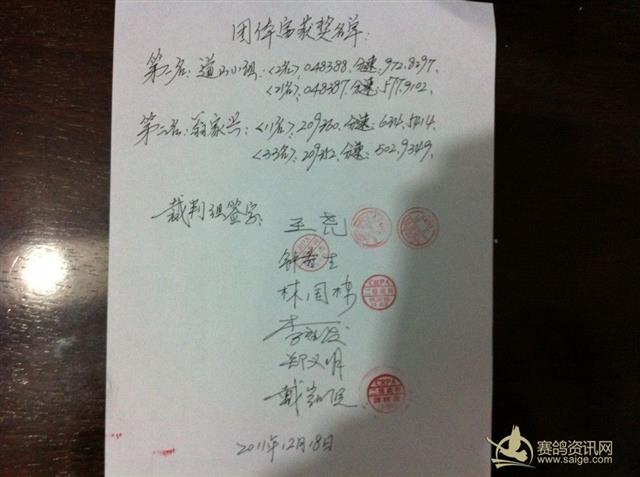 团体赛获奖名单:
第一名:道口小组:〈2名〉,048388,分速:972.8297,
〈21名〉,048387,分速:577.9102,
第二名:翁家兴:〈11名〉,209360,分速:634.5414,
〈33名〉,209352,分速:502.9349,
裁判组签字:
王尧
林国棉
郑文明
2011年12月18日
赛鸽资讯网
www.saige.com